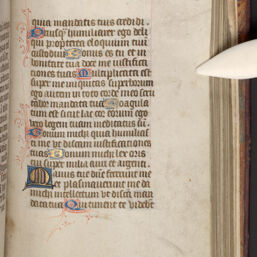 quia mandatis tuis credidi.
Priusq̃ humiliarer ego deli
qui propterea eloquium tuu
custodiui Bonus es tu et in
bonitate tua doce me iustifica
tiones tuas Multiplicata est
super me iniquitas superborum
ego autem in toto corde meo scru
tabor mandata tua Coagula
tum est sicut lac cor eorum ego
vero legem tuam meditatus su.
Bonum michi quia humilias
ti me ut discam iustificationes
tuas Bonum michi lex oris
tui super milia auri et argenti.
Manus tue dñe fecerunt me
et plasmauerunt me da
michi intellectum ut discā man
data tua Qui timent te videbt